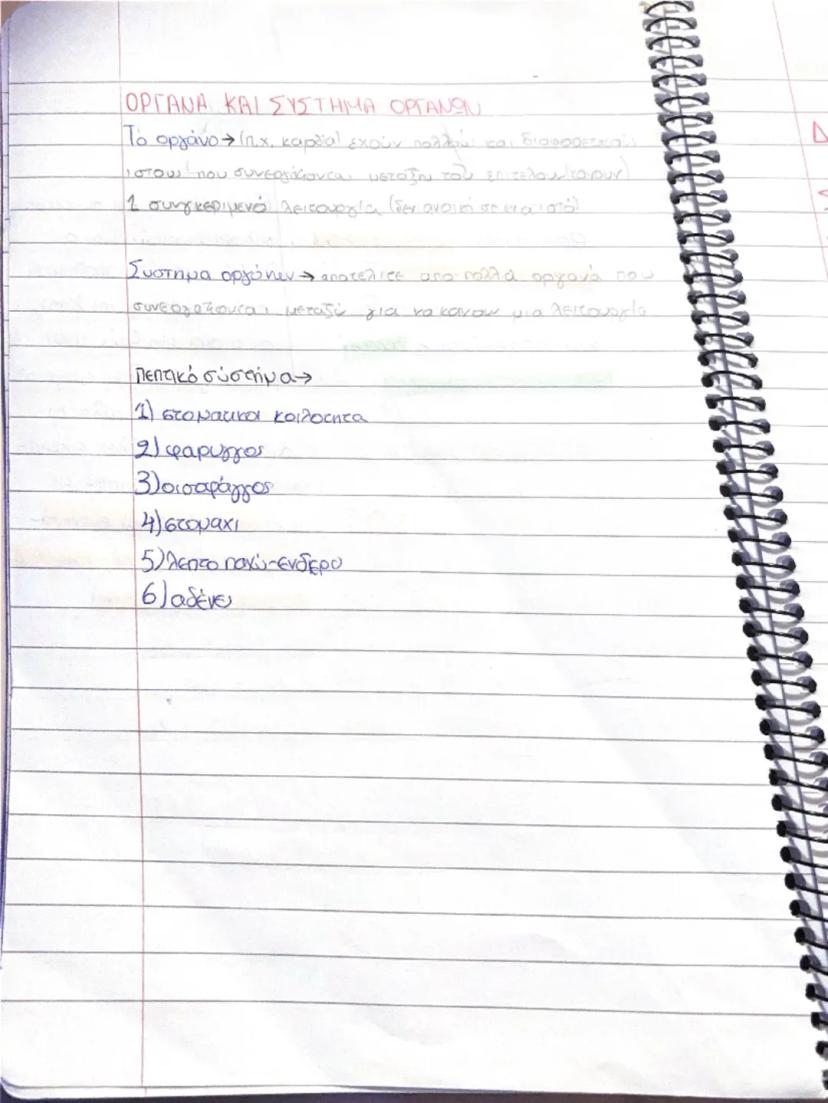 ΟΡΓΑΝΑ ΚΑΙ ΣΥΣΤΗΜΑ ΟΡΓΑΝΩΝ
Το οργάνο → (π.χ. καρδιά) εχούν πολλού και διαφορετικού
ιστου που συνεργάζονται μεταξη του
1 συνγκεριμενό λειτουργία (δεν ανοικι σε ενα ιστό)
Συστημα οργάνων → αποτελιτε απο πολλά οργανά που
συνεργαζονται μεταξύ για να κανουν μια λειτουργία
πεπτικό σύστημα →
1) στοματικοι κοιλοτητα
2) φαρυγγος
3) οισοφάγγος
4) στομαχι
5) λεπτο παχύ-ενδερο
6) αδένες
Δ